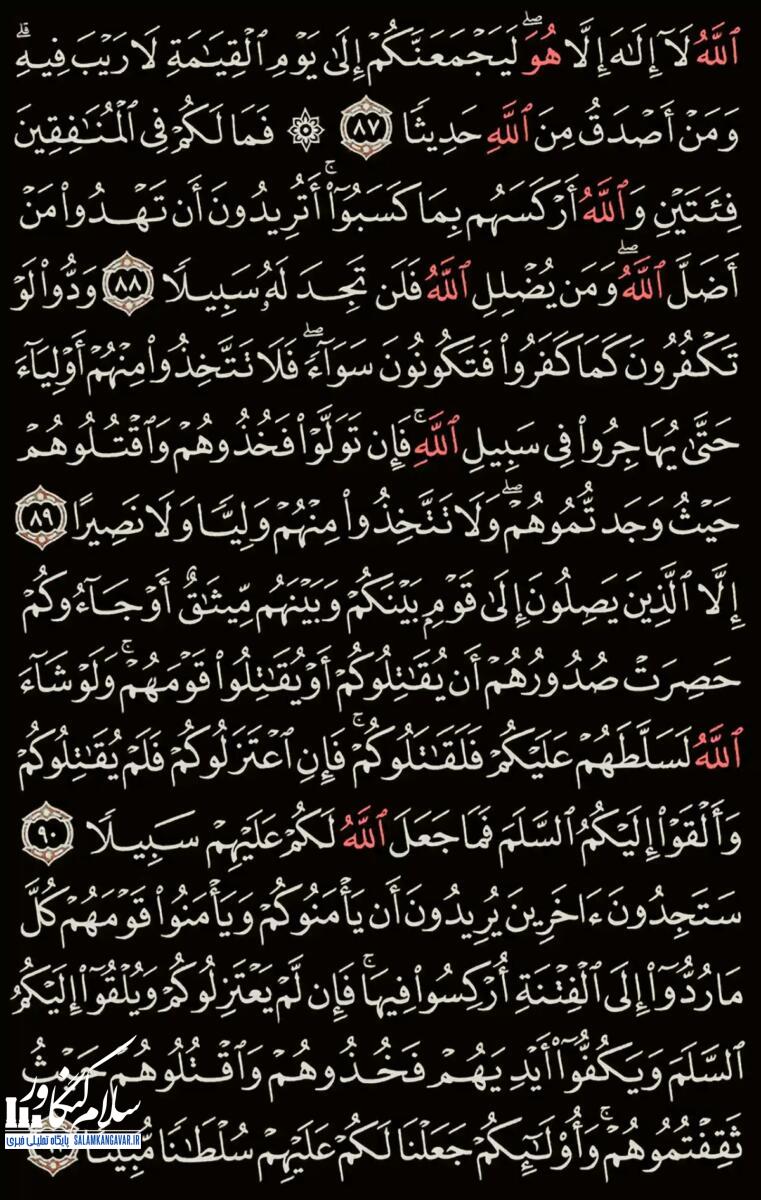 ٱللَّهُ لَآ إِلَٰهَ إِلَّا هُوَۖ لَيَجۡمَعَنَّكُمۡ إِلَىٰ يَوۡمِ ٱلۡقِيَٰمَةِ لَا رَيۡبَ فِيهِۗ
وَمَنۡ أَصۡدَقُ مِنَ ٱللَّهِ حَدِيثٗا ٨٧ ۞ فَمَا لَكُمۡ فِي ٱلۡمُنَٰفِقِينَ
فِئَتَيۡنِ وَٱللَّهُ أَرۡكَسَهُم بِمَا كَسَبُوٓاْۚ أَتُرِيدُونَ أَن تَهۡدُواْ مَنۡ
أَضَلَّ ٱللَّهُۖ وَمَن يُضۡلِلِ ٱللَّهُ فَلَن تَجِدَ لَهُۥ سَبِيلٗا ٨٨ وَدُّواْ لَوۡ
تَكۡفُرُونَ كَمَا كَفَرُواْ فَتَكُونُونَ سَوَآءٗۖ فَلَا تَتَّخِذُواْ مِنۡهُمۡ أَوۡلِيَآءَ
حَتَّىٰ يُهَاجِرُواْ فِي سَبِيلِ ٱللَّهِۚ فَإِن تَوَلَّوۡاْ فَخُذُوهُمۡ وَٱقۡتُلُوهُمۡ
حَيۡثُ وَجَدتُّمُوهُمۡۖ وَلَا تَتَّخِذُواْ مِنۡهُمۡ وَلِيّٗا وَلَا نَصِيرًا ٨٩
إِلَّا ٱلَّذِينَ يَصِلُونَ إِلَىٰ قَوۡمِۭ بَيۡنَكُمۡ وَبَيۡنَهُم مِّيثَٰقٌ أَوۡ جَآءُوكُمۡ
حَصِرَتۡ صُدُورُهُمۡ أَن يُقَٰتِلُوكُمۡ أَوۡ يُقَٰتِلُواْ قَوۡمَهُمۡۚ وَلَوۡ شَآءَ
ٱللَّهُ لَسَلَّطَهُمۡ عَلَيۡكُمۡ فَلَقَٰتَلُوكُمۡۚ فَإِنِ ٱعۡتَزَلُوكُمۡ فَلَمۡ يُقَٰتِلُوكُمۡ
وَأَلۡقَوۡاْ إِلَيۡكُمُ ٱلسَّلَمَ فَمَا جَعَلَ ٱللَّهُ لَكُمۡ عَلَيۡهِمۡ سَبِيلٗا ٩٠
سَتَجِدُونَ ءَاخَرِينَ يُرِيدُونَ أَن يَأۡمَنُوكُمۡ وَيَأۡمَنُواْ قَوۡمَهُمۡ كُلَّ
مَا رُدُّوٓاْ إِلَى ٱلۡفِتۡنَةِ أُرۡكِسُواْ فِيهَاۚ فَإِن لَّمۡ يَعۡتَزِلُوكُمۡ وَيُلۡقُوٓاْ إِلَيۡكُمُ
ٱلسَّلَمَ وَيَكُفُّوٓاْ أَيۡدِيَهُمۡ فَخُذُوهُمۡ وَٱقۡتُلُوهُمۡ حَيۡثُ
ثَقِفۡتُمُوهُمۡۚ وَأُوْلَٰٓئِكُمۡ جَعَلۡنَا لَكُمۡ عَلَيۡهِمۡ سُلۡطَٰنٗا مُّبِينٗا
سلام کنگاور
پایگاه تحلیلی خبری SALAMKANGAVAR.IR